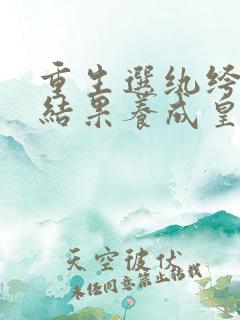 重生選紈絝
結果養成皇
天空彼伏
未經同意禁止轉載